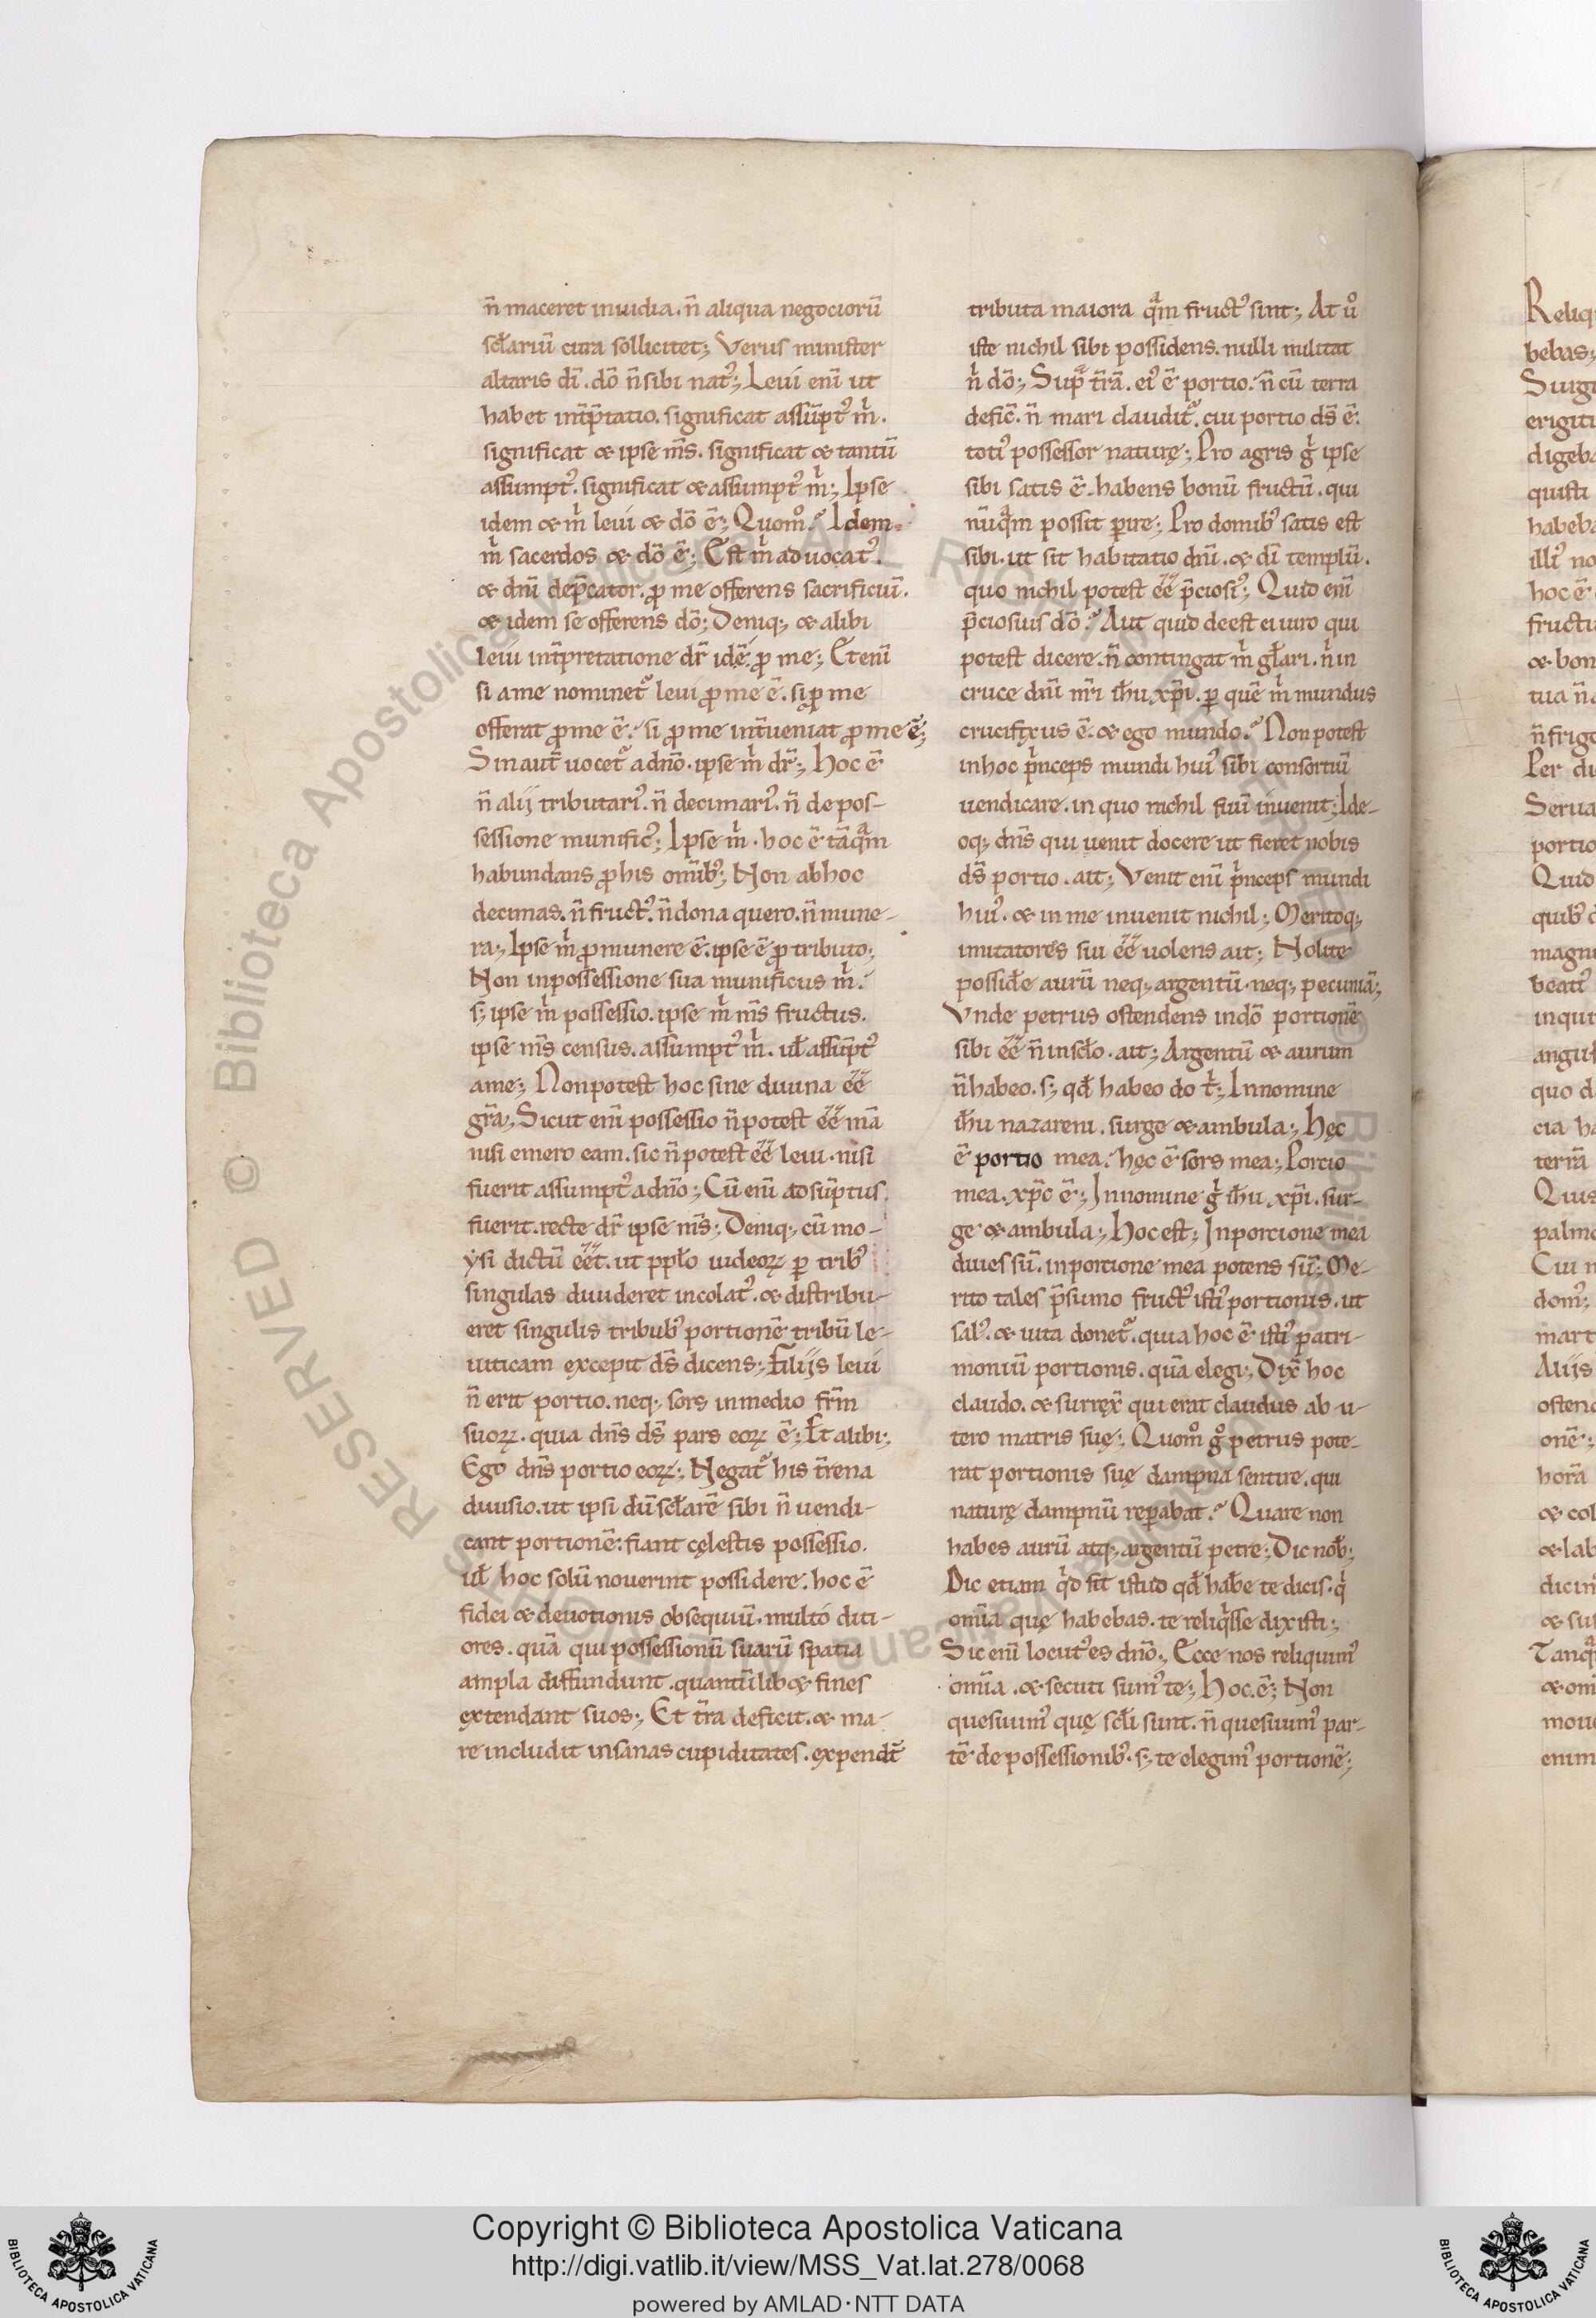 n̄ maceret inuidia. n̄ aliqua negociorū
scl̄ariū cura sollicitet; Verus minister
altaris dī. dō n̄ sibi nat᾿; Leui enī ut
habet int̄p̄tatio. significat assūpt᾿ m̍.
significat & ipse m̄s. significat & tantū
assumpt᾿. significat & assumpt᾿ m̍; Ipse
idem & m̍ leui & dō ē; Quomo? Idem
m̍ sacerdos & dō ē; Est m̍ aduocat᾿.
& dnī dep̄cator. ꝓ me offerens sacrificiuī.
& idem se offerens dō; Deniq; & alibi
leui int̄pretatione dr̄ idē. ꝓ me; Etenī
si a me nominet᾿ leui ꝓ me ē. si ꝓ me
offerat ꝓ me ē. si ꝓ me int̄ueniat ꝓ me ē;
Sin aut̄ uocet᾿ a dn̄o. ipse m̍ dr̄; Hoc ē
n̄ alij tributari᾿. n̄ decimari᾿. n̄ de pos-
sessione munific᾿; Ipse m̍. hoc ē tāqm
habundans ꝓ his omīb᾿; Non ab hoc
decimas. n̄ fruct᾿. n̄ dona quero. n̄ mune-
ra; Ipse m̍ ꝓ munere ē. ipse ē ꝓ tributo;
Non in possessione sua munificus m̍.
s; ipse m̍ possessio. ipse m̍ m̄s fructus.
ipse m̄s census. assumpt᾿ m̍. ul̄ assūpt᾿
a me; Non potest hoc sine diuina ēē
gr̄a; Sicut enī possessio n̄ potest ēē mā
nisi emero eam. sic n̄ potest ēē leui. nisi
fuerit assumpt᾿ a dn̄o; Cū enī adsūptus
fuerit. recte dr̄ ipse m̄s; Deniq; cū mo-
ẏsi dictū ēēt. ut ppl̄o iudeoꝝ ꝑ trib᾿
singulas diuideret incolat᾿. & distribu-
eret singulis tribub᾿ portionē tribū le-
uiticam excepit ds̄ dicens; Filijs leui
n̄ erit portio. neq; sors in medio fr̄m
suoꝝ. quia dn̄s ds̄ pars eoꝝ ē; Et alibi;
Ego dn̄s portio eoꝝ; Negat᾿ his t̄rena
diuisio. ut ipsi dū scl̄arē sibi n̄ uendi-
cant portionē: fiant cęlestis possessio.
ul̄ hoc solū nouerint possidere. hoc ē
fidei & deuotionis obsequiū. multo diti-
ores. quā qui possessionū suarū spatia
ampla diffundunt. quantūlib& fines
extendant suos; Et t̄ra deficit. & ma-
re includit insanas cupiditates. expendt̄
tributa maiora qm fruct᾿ sint; At uo
iste nichil sibi possidens. nulli militat
n̍ dō; Sup t̄rā. ei᾿ ē portio. n̄ cū terra
defic̄. n̄ mari claudit᾿. cui portio ds̄ ē.
toti᾿ possessor naturę; Pro agris g̍ ipse
sibi satis ē. habens bonū fructū. qui
nūqm possit ꝑire; Pro domib᾿ satis est
sibi. ut sit habitatio dnī. & dī templū.
quo nichil potest ēē p̄ciosi᾿; Quid enī
p̄ciosius dō? Aut quid deest ei uiro qui
potest dicere. n̄ contingat m̍ gl̄ari. n̍ in
cruce dnī nr̄i ih̄u xp̄i. ꝑ quē m̍ mundus
crucifixus ē. & ego mundo? Non potest
in hoc p̍nceps mundi hui᾿ sibi consortiū
uendicare. in quo nichil suuī inuenit; Ide-
oq; dn̄s qui uenit docere ut fieret nobis
ds̄ portio. ait; Venit enī p̍nceps mundi
hui᾿. & in me inuenit nichil; Meritoq;
imitatores sui ēē uolens ait; Nolite
possid̄e aurū neq; argentū. neq; pecuniā;
Vnde petrus ostendens in dō portionē
sibi ēē n̄ in scl̄o. ait; Argentū & aurum
n̄ habeo. s; qd̄ habeo do t̍; In nomine
ih̄u nazareni. surge & ambula; Hęc
ē portio mea. hęc ē sors mea; Porcio
mea. xp̄c ē; In nomine g̍ ih̄u xp̄i. sur-
ge & ambula; Hoc est; In porcione mea
diues sū. in porcione mea potens sū; Me-
rito tales p̄sumo fruct᾿ isti᾿ portionis. ut
sal᾿. & uita donet᾿. quia hoc ē isti᾿ patri-
moniū portionis. quā elegi; Dix̄ hoc
claudo. & surrex̄ qui erat claudus ab u-
tero matris suę; Quomo go petrus pote-
rat portionis suę dampna sentire. qui
naturę dampnū reꝑabat? Quare non
habes aurū atq; argentū petre; Dic nob̄;
Dic etiam q̍d sit istud qd̄ hab̄e te dicis. q̍
omīa quę habebas. te reliq̍sse dixisti;
Sic enī locut᾿ es dn̄o; Ecce nos reliquim᾿
omīa. & secuti sum᾿ te; Hoc. ē; Non
quesiuim᾿ quę scl̄i sunt. n̄ quesiuim᾿ par-
tē de possessionib᾿. s; te elegim᾿ portionē;
Copyright © Biblioteca Apostolica Vaticana
http://digi.vatlib.it/view/MSS_Vat.lat.278/0068
powered by AMLAD·NTT DATA